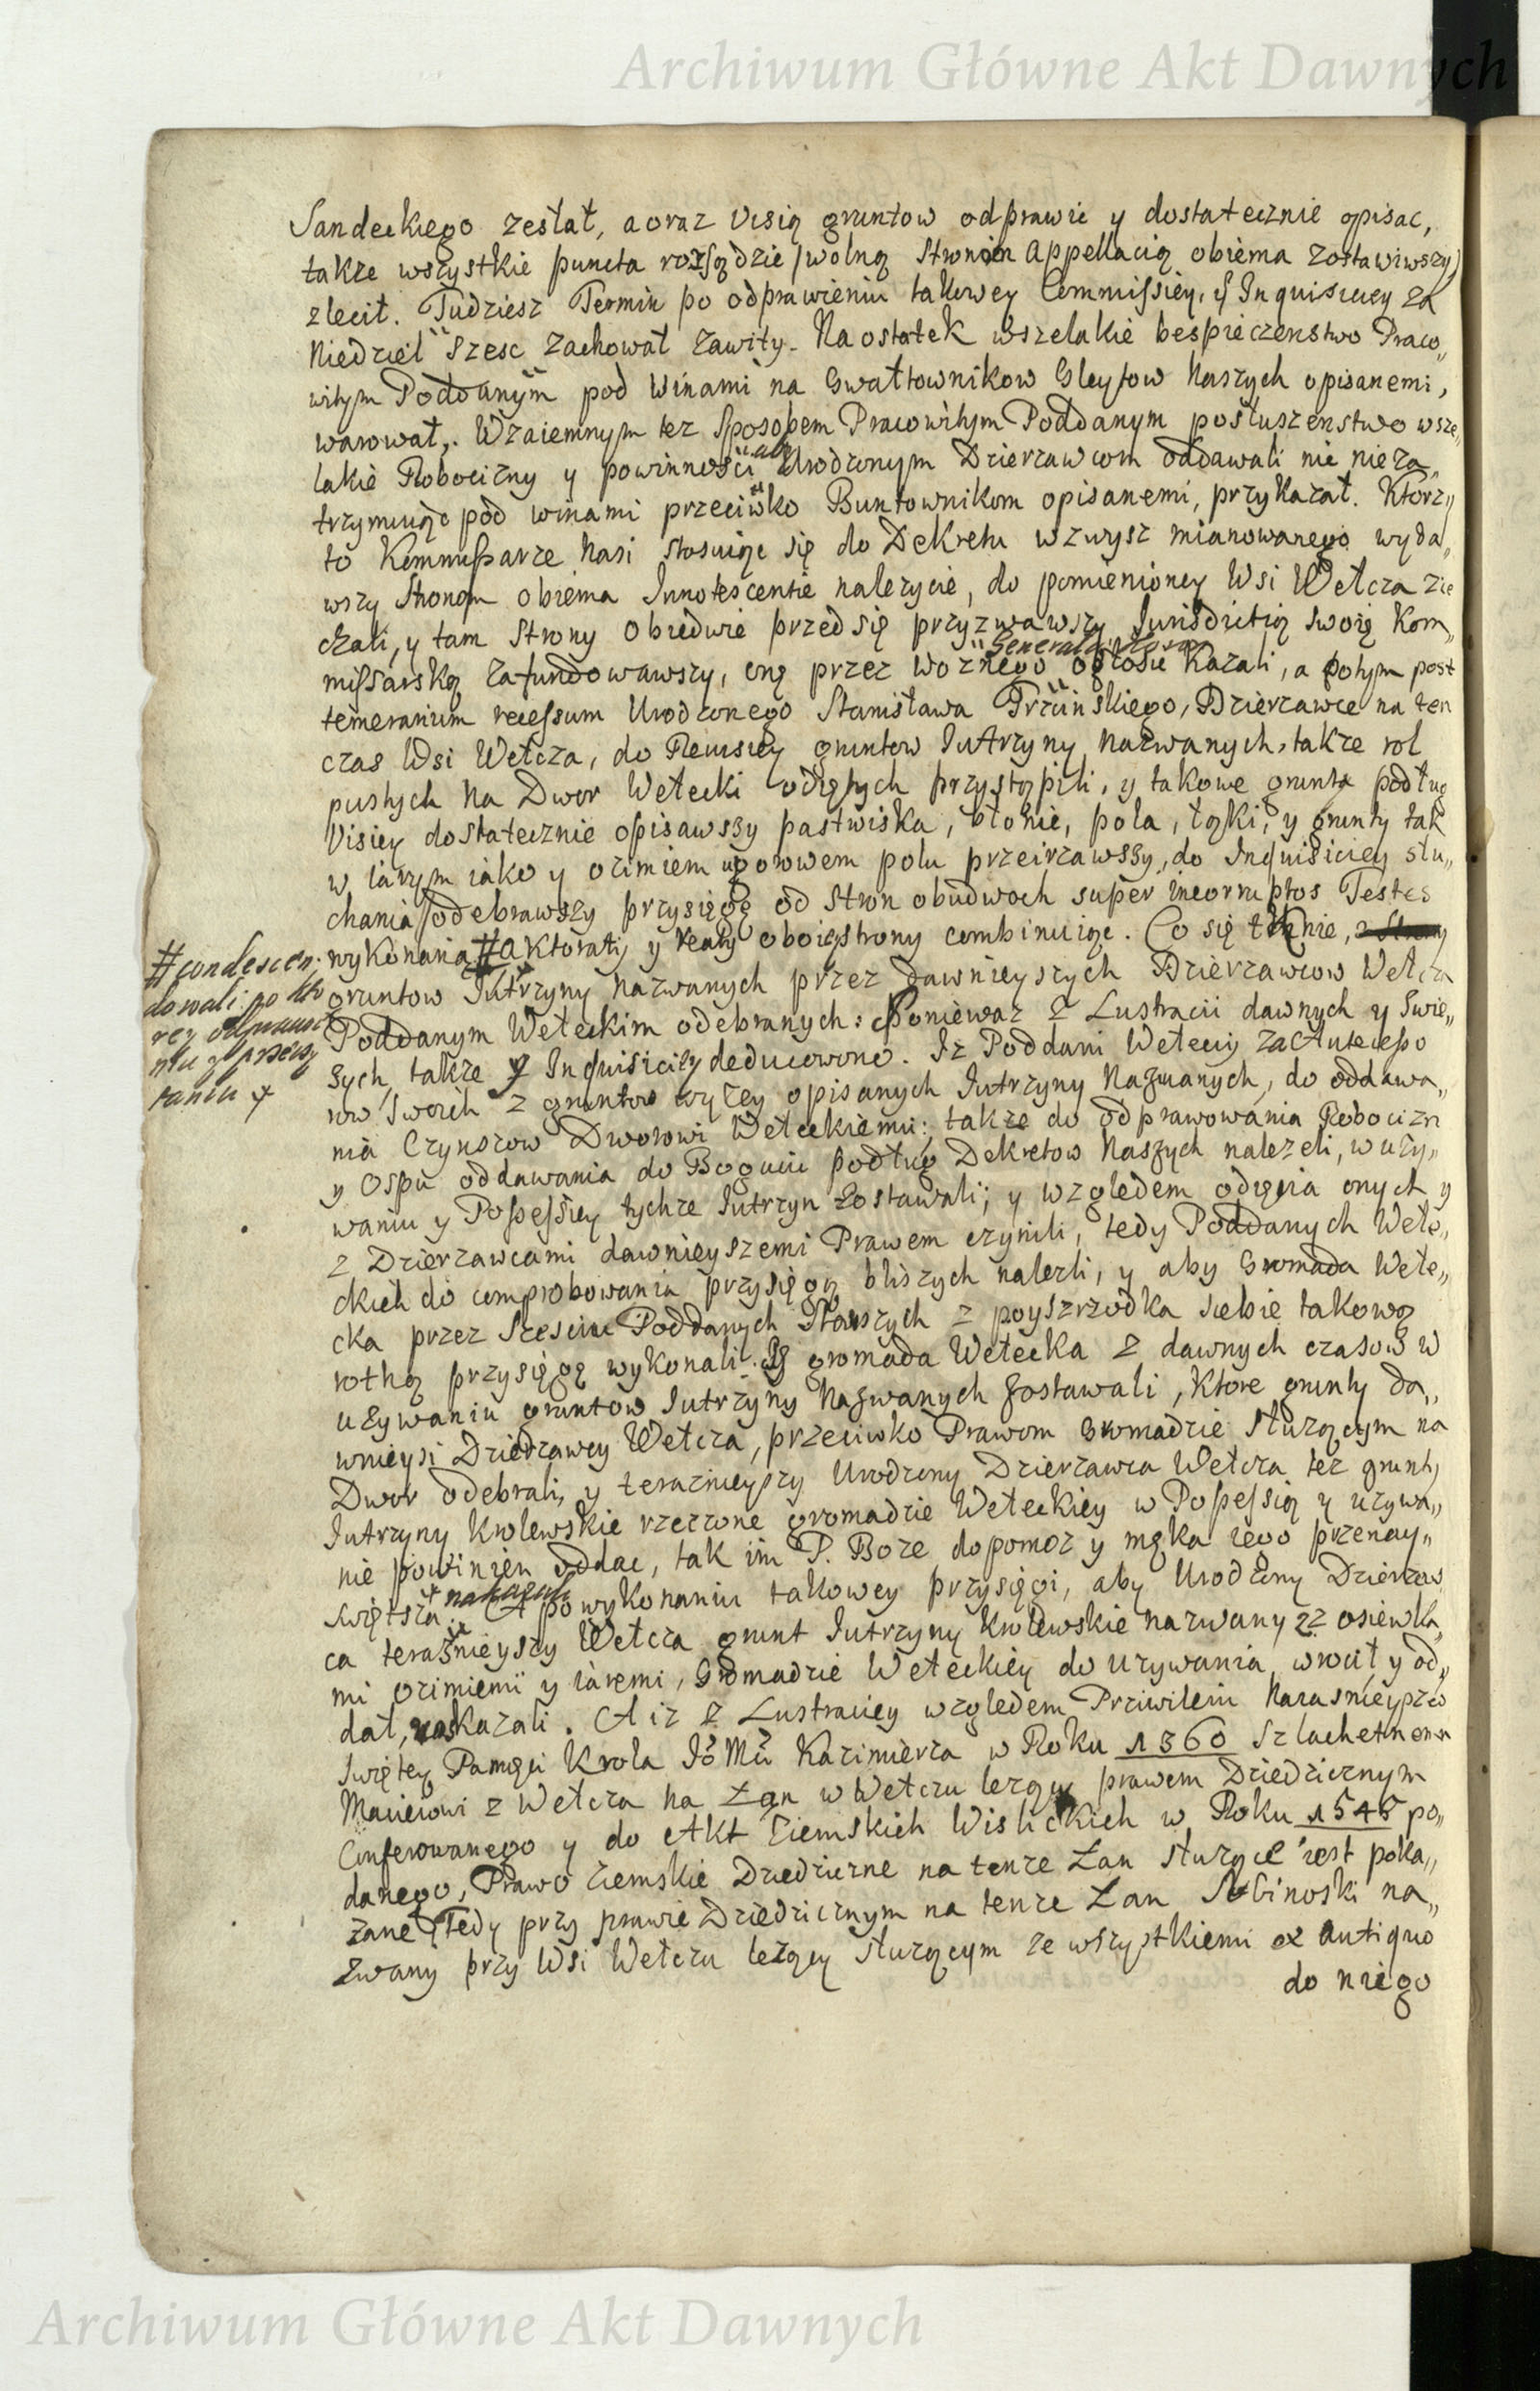 Archiwum Główne Akt Dawnych
Sandeckiego zesłał, a oraz Visią gruntow odprawić y dostatecznie opisac,
także wszystkie puncta rozsądzić (wolną Stronom Appellacią obiema zostawiwszy)
zlecił. Tudziesz Termin po odprawieniu takowey Commissiey, y Inquisiciey za
Niedziel Szesc zachował zawity. Na ostatek wszelakie bespieczenstwo Praco„
witym Poddanym pod winami na Gwałtownikow Gleytow Naszych opisanemi,
warował. Wzaiemnym tez Sposobem Pracowitym Poddanym posłuszenstwo wsze„
lakie Robocizny y powinnosci aby Urodzonym Dzierzawcom oddawali nic nieza„
trzymuiąc pod winami przeciwko Buntownikom opisanemi, przykazał. Ktorzy
to Kommissarze Nasi stosuiąc się do Dekretu wzwysz mianowanego wyda„
wszy Stronom obiema Innotescentie nalezycie, do pomienioney Wsi Wełcza zie
chali, y tam Strony obiedwie przed się przyzwawszy Jurisdictią swoię Kom„
missarską zafundowawszy, onę przez Woznego Generała ogłosic kazali, a potym post
temerarium recessum Urodzonego Stanisława Trzcinskiego, Dzierzawce na ten
czas Wsi Wełcza, do Rewisiey gruntow Jutrzyny Nazwanych, także rol
pustych Na Dwor Wełecki odiętych przystąpili, y takowe grunta podług
Visiey dostatecznie opisawszy pastwiska, błonie, pola, łąki, y grunty tak
w iarym iako y ozimiem ugorowem polu przeirzawszy, do Inquisiciey słu„
chania odebrawszy przysięgę od Stron obudwoch super incorruptos Testes
wykonania # aktoraty y reaty oboiey strony combinuiąc. Co się tknie,
#condescen:
dowali: po kto
rey
gruntow Jutrzyny Nazwanych przez dawnieyszych Dzierzawcow Wełcza
Poddanym Wełeckim odebranych: Poniewaz z Lustracii dawnych y Swie„
zych, także y Inquisiciey deducowono. Iz Poddani Weteccy za Antecesso
row Swoich z gruntow wyzey opisanych Jutrzyny Nazwanych, do oddawa„
nia Czynszow Dworowi Wełeckiemu; także do odprawowania Robocizn
y Ospu oddawania do Bogucic podług Dekretow Naszych nalezeli, w uzy„
waniu y Possessiey tychze Jutrzyn zostawali; y względem odięcia onych y
z Dzierzawcami dawnieyszemi Prawem czynili, tedy Poddanych Wełe„
ckich do comprobowania przysięgą bliszych nalezli, y aby Gromada Wełe„
cka przez szesciu Poddanych Starszych z poyszrzodka siebie takową
rothą przysięgę wykonali. Iz gromada Wełecka z dawnych czasow w
uzywaniu gruntow Jutrzyny Nazwanych zostawali, ktore grunty da„
wnieysi Dzierzawcy Wełcza, przeciwko Prawom Gromadzie słuzącym na
Dwor odebrali, y teraznieyszy Urodzony Dzierzawca Wełcza tez grunty
Jutrzyny Krolewskie rzeczone gromadzie Wełeckiey w Possessią y uzywa„
nie powinien oddac, tak im P. Boze dopomoz y męka iego przenay„
swiętsza. A po wykonaniu takowey przysięgi, aby Urodzony Dzierzaw
ca terasnieyszy Wełcza grunt Jutrzyny Krolewskie nazwany zz osiewka„
mi ozimiemi y iaremi, Gromadzie Wełeckiey do uzywania wrocił y od„
dał, nakazali. A iz z Lustraciey względem Przivileiu Naiasnieyszeo
Swiętey Pamięci Krola Jo Mci Kazimierza w Roku 1360 Szlachetnemu
Macieiowi z Wełcza na Łan w Wełczu lezący prawem Dziedzicznym
Conferowanego y do Akt Ziemskich Wislickich w Roku 1548 po„
danego, Prawo Ziemskie Dziedziczne na tenze Łan słuzące iest poka„
zane, Tedy przy prawie Dziedzicznym na tenze Łan na„
zwany przy Wsi Wełczu lezący słuzącym ze wszystkiemi ex antiquo
do niego
Archiwum Główne Akt Dawnych